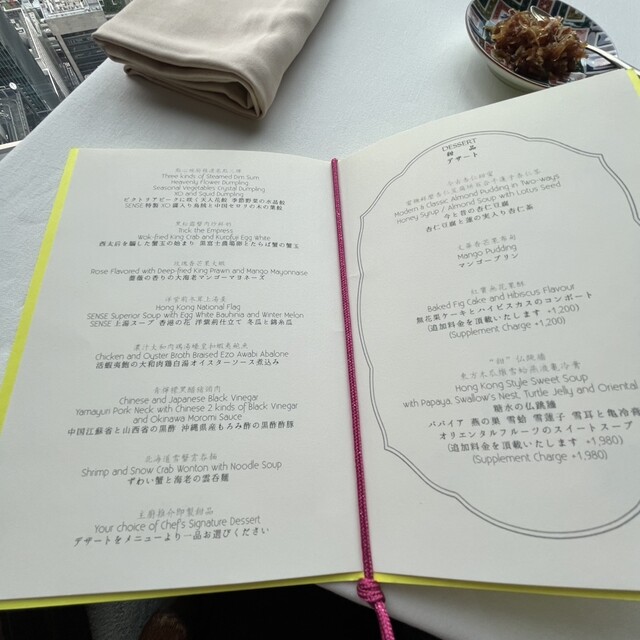 Three kinds of Steamed Dim Sum
Heavenly Flower Dumpling
Seasonal Vegetables Crystal Dumpling
XO and Squid Dumpling
ビクトリアピークに咲く天人花餃 季節野菜の水晶餃
SENSE 特製 XO 醤入り海鮮と中国セロリの木の葉餃
Trick the Empress
Wok-fried King Crab and Kueifui Egg White
西太后を騙した蟹玉の始まり 黒皮十歳葡萄とたらば蟹の蟹玉
玫瑰香芒果大蝦
Rose Flavored with Deep-fried King Prawn and Mango Mayonnaise
薔薇の香りの大海老マンゴーマヨネーズ
Hong Kong National Flag
SENSE Superior Soup with Egg White Bauhinia and Winter Melon
SENSE 上湯スープ 香港の花 洋紫荊仕立て 冬瓜と錦糸瓜
Chicken and Oyster Broth Braised Ezo Awabi Abalone
活蝦夷鮑の大和肉鶏白湯オイスターソース煮込み
Chinese and Japanese Black Vinegar
Yamayun Pork Neck with Chinese 2 kinds of Black Vinegar
and Okinawa Moromi Sauce
中国江蘇省と山西省の黒酢 沖縄県産もろみ酢の黒酢酢豚
北海道雪蟹雲呑麺
Shrimp and Snow Crab Wonton with Noodle Soup
ずわい蟹と海老の雲呑麺
主廚推介即製甜品
Your choice of Chef's Signature Dessert
デザートをメニューより一品お選びください
DESSERT
甜品
デザート
Modern & Classic Almond Pudding in Two-ways
Honey Syrup / Almond Soup with Lotus Seed
今と昔の杏仁豆腐
杏仁豆腐と蓮の実入り杏仁茶
Mango Pudding
マンゴープリン
Baked Fig Cake and Hibiscus Flavour
無花果ケーキとハイビスカスのコンポート
(追加料金を頂戴いたします +1,200)
(Supplement Charge +1,200)
"甜" 仏跳牆
Hong Kong Style Sweet Soup
with Papaya, Swallow's Nest, Turtle Jelly and Oriental
糖水の仏跳牆
パパイア 燕の巣 雪蛤 雪蓮子 雪耳と亀冷膏
オリエンタルフルーツのスイートスープ
(追加料金を頂戴いたします +1,980)
(Supplement Charge +1,980)